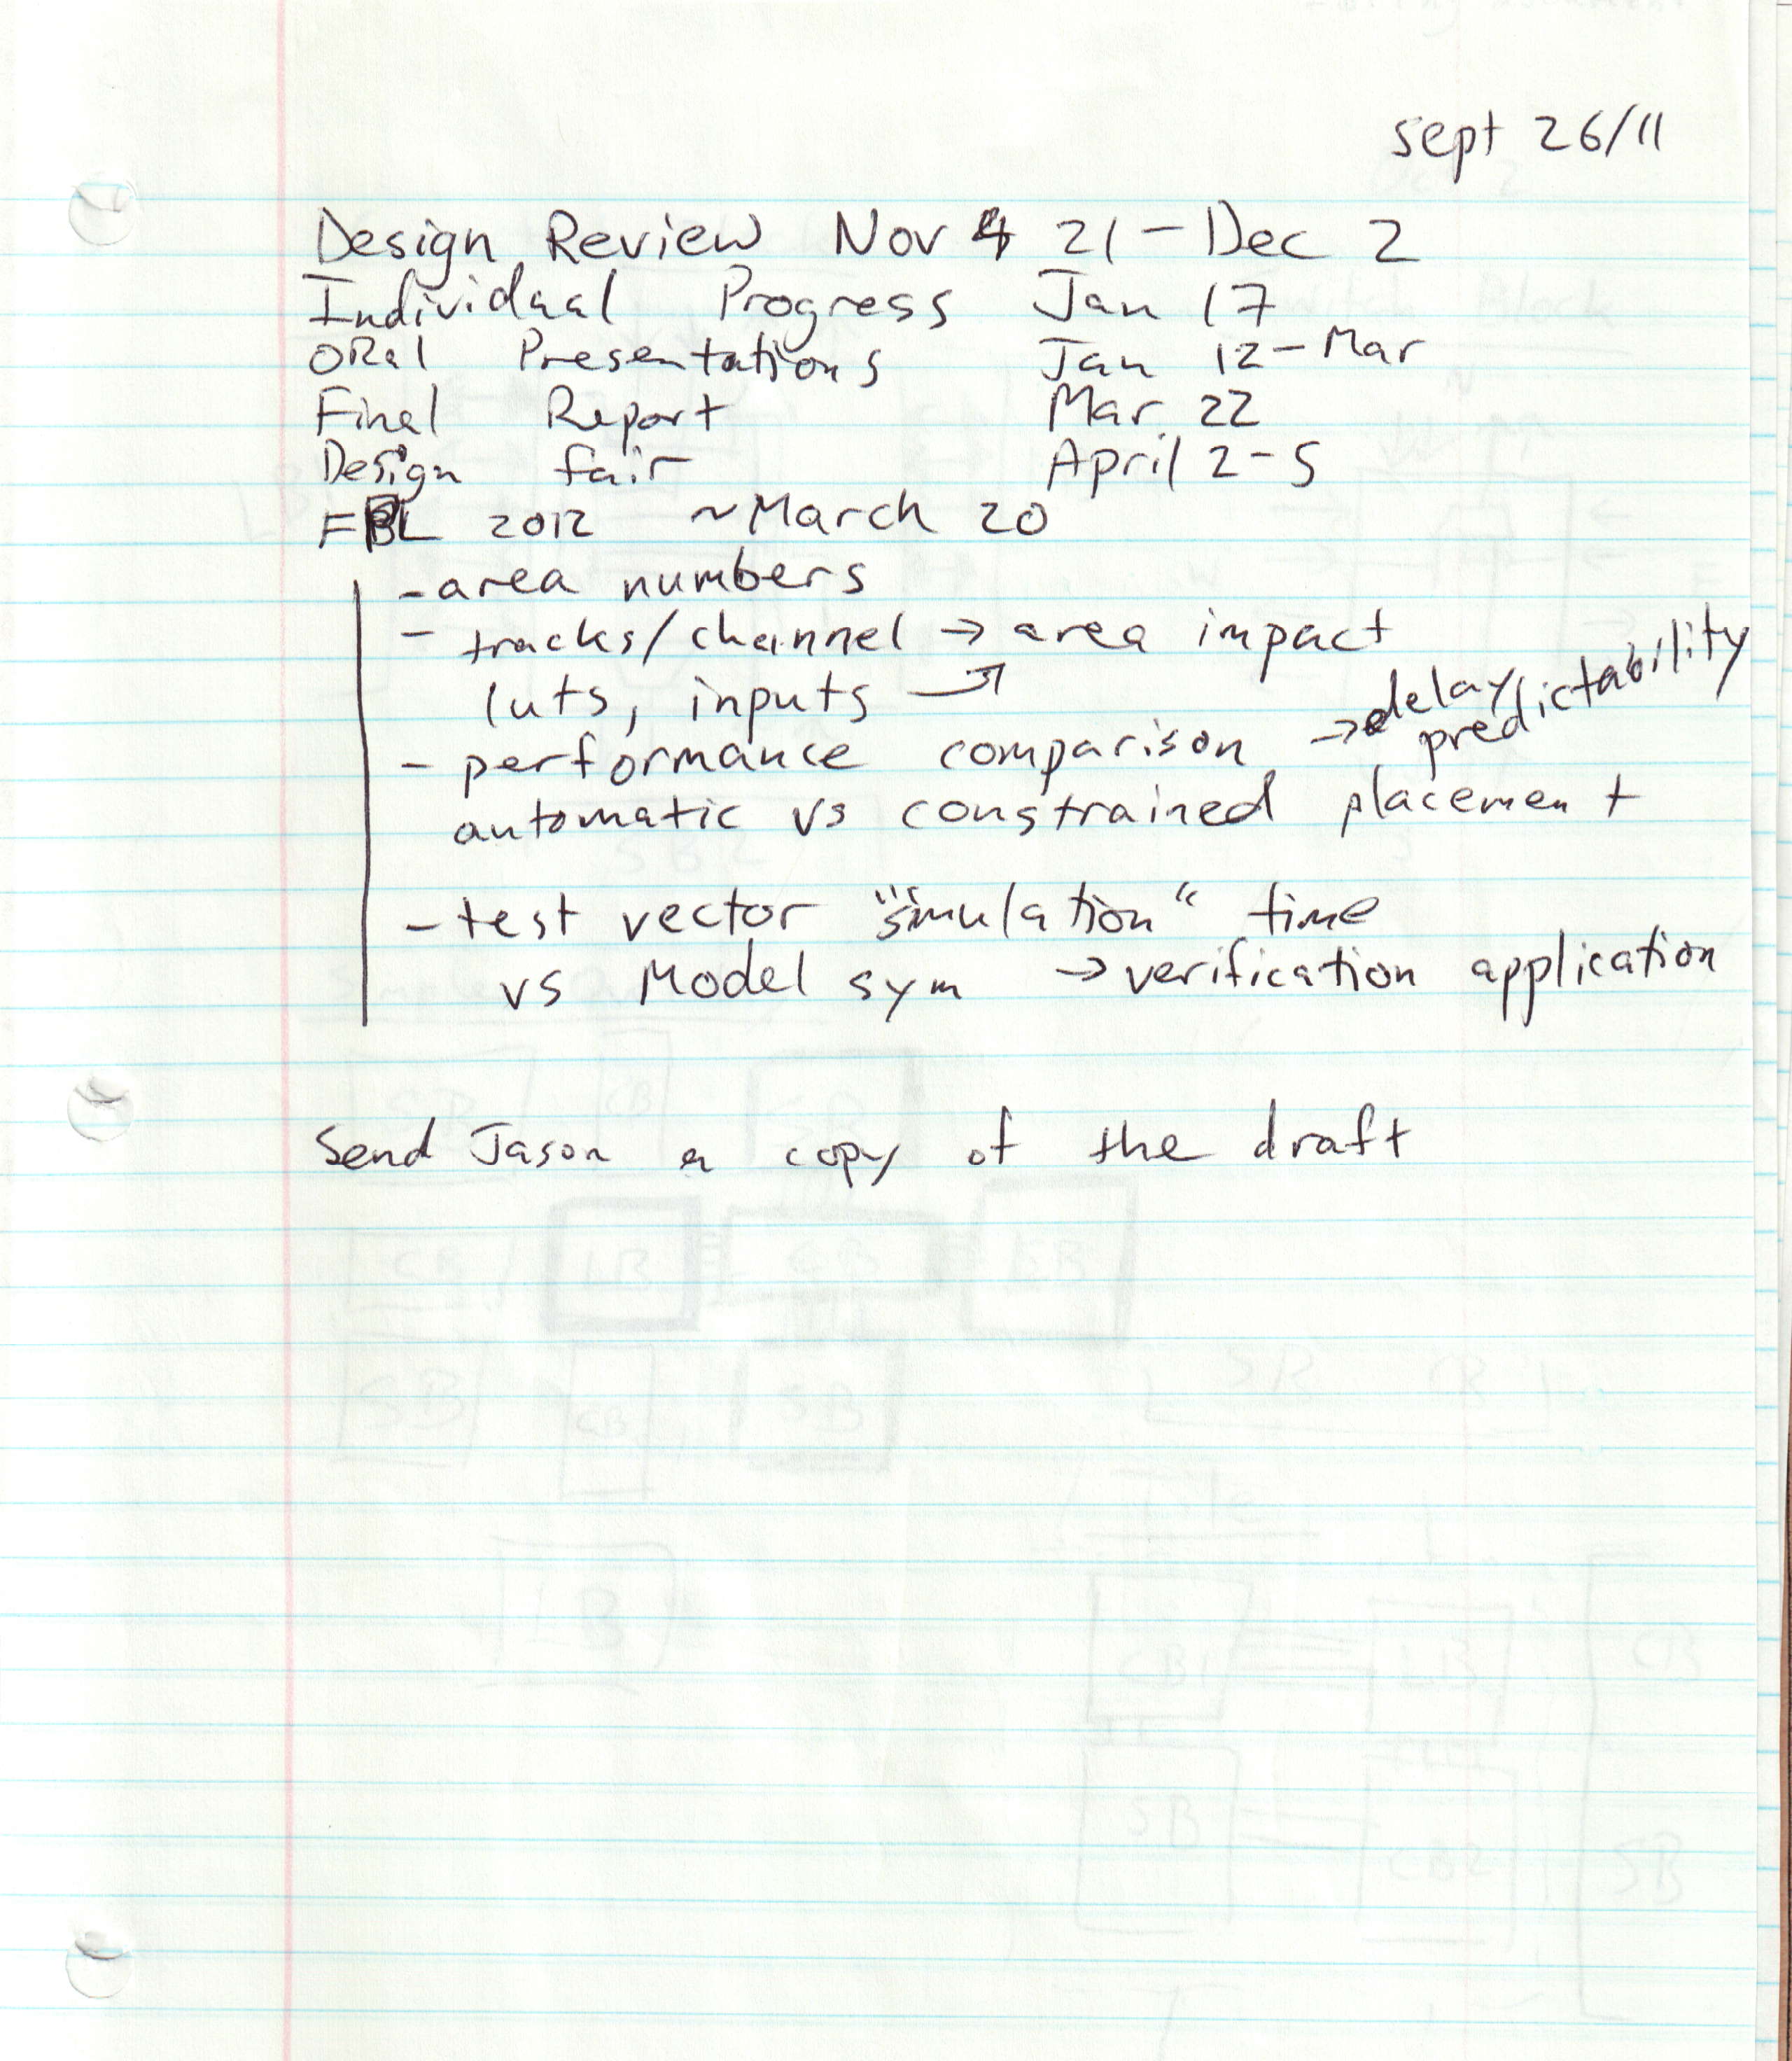 sept 26/11
Design Review Nov 21 - Dec 2
Individual Progress Jan 17
ORal Presentations Jan 12 - Mar
Final Report Mar. 22
Design fair April 2-5
2012 ~March 20
- area numbers
- tracks/channel → area impact
luts, inputs ↗
- performance comparison → delay predictability
automatic vs constrained placement
- test vector "simulation" time
vs Model sym → verification application
Send Jason a copy of the draft